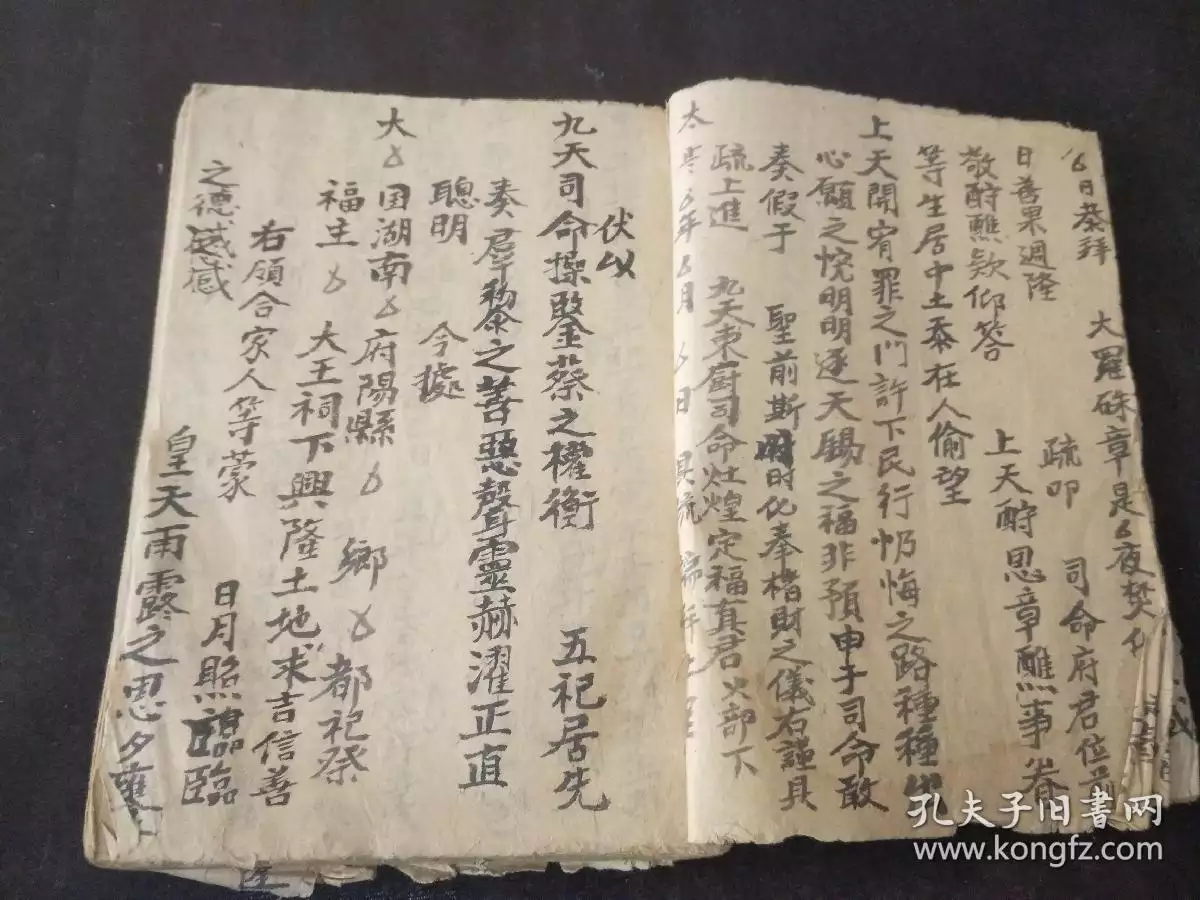 大羅硃章是夜焚化
日恭拜 疏叩 司命府君位前
日善果週隆 上天酧恩章醮事眷
敬酧醮欵仰答
等生居中土忝在人偷望
上天開宥罪之门許下民行忏悔之路種種出
心願之悦明明逐天賜之福非預申于司命敢
奏假于 聖前斯時化奉楮財之儀右謹具
疏上進 九天東厨司命灶煌定福真君火部下
太 年 月 日具疏
伏以
九天司命操鑒蔡之權衡 五祀居先
奏羣黎之善惡聲靈赫濯正直
聰明 今據
大 国湖南 府陽縣 鄉 都祀祭
福主 大王祠下興隆土地求吉信善
右領合家人等蒙 日月照臨臨
之德感感 皇天雨露之恩夕
孔夫子旧書网
www.kongfz.com